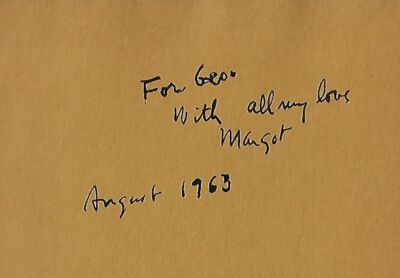 For Geo.
With all my love
Margot
August 1963